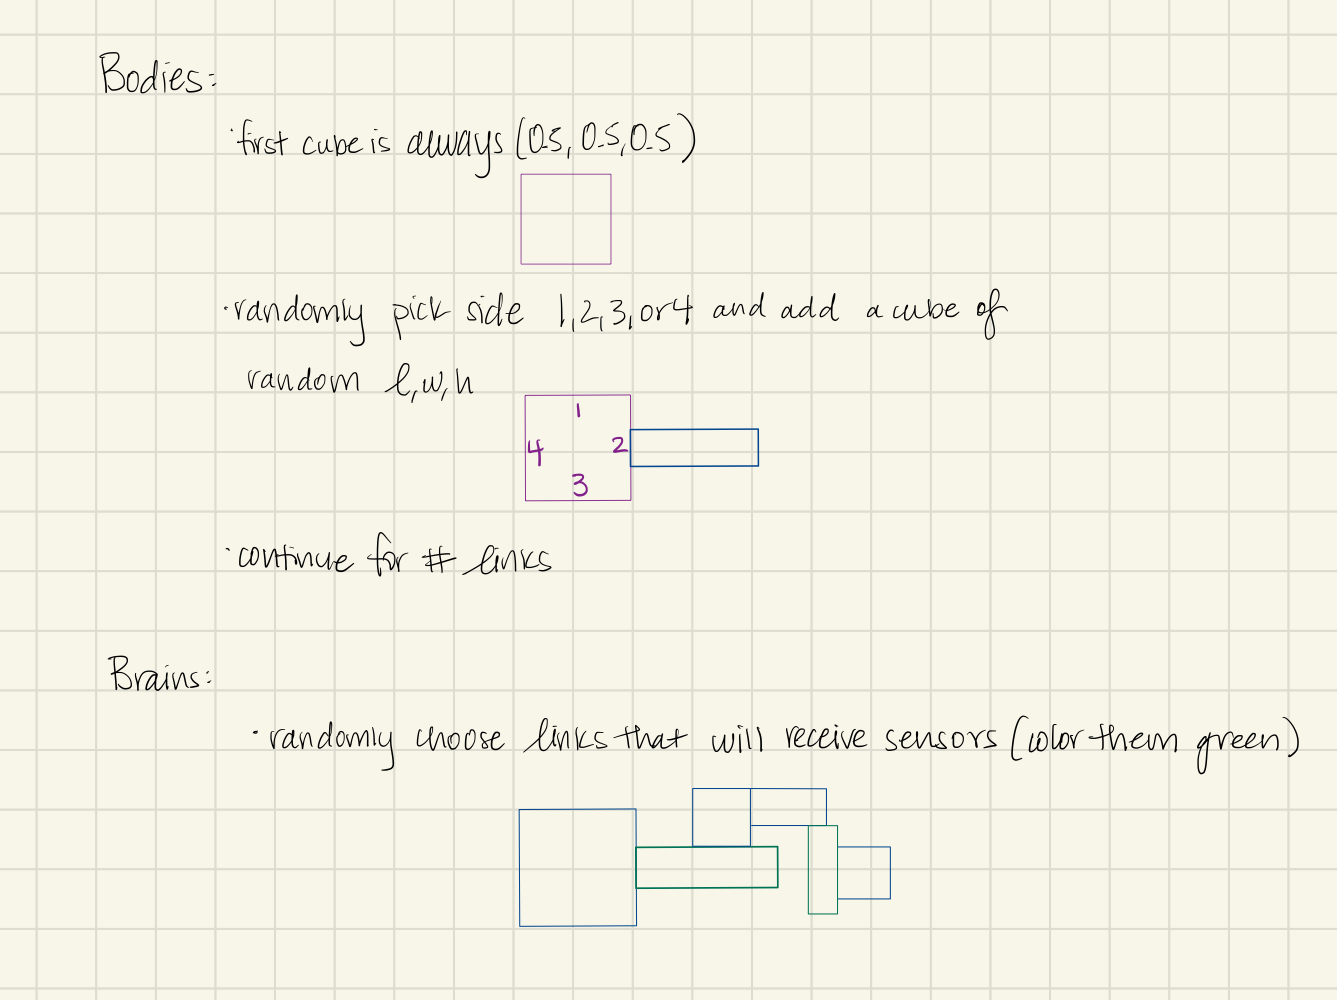 Bodies:
· first cube is always (0.5, 0.5, 0.5)
· randomly pick side 1, 2, 3, or 4 and add a cube of
random l, w, h
1
4 2
3
· continue for # links
Brains:
· randomly choose links that will receive sensors (color them green)